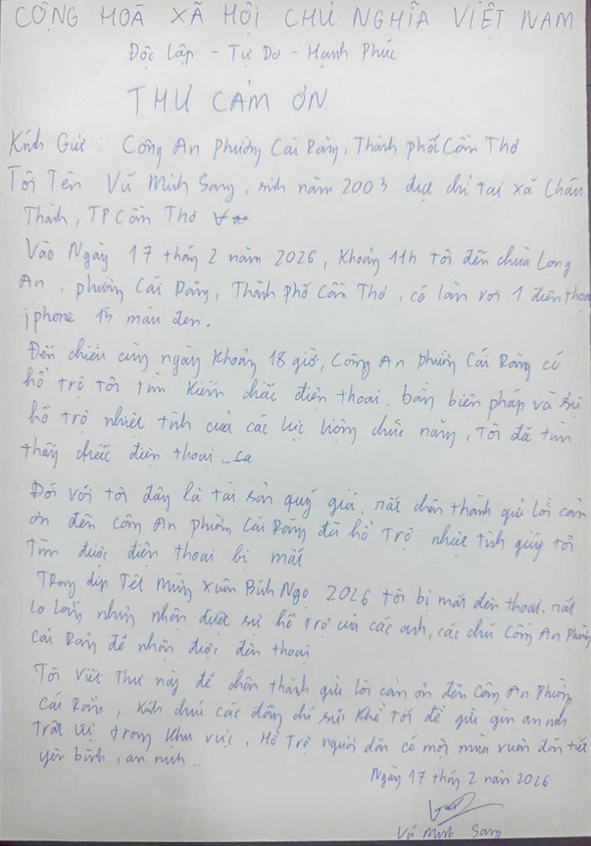 CỘNG HOÀ XÃ HỘI CHỦ NGHĨA VIỆT NAM
Độc Lập - Tự Do - Hạnh Phúc
THƯ CẢM ƠN
Kính Gửi : Công An Phường Cái Răng, Thành phố Cần Thơ
Tôi Tên Vũ Minh Sang, sinh năm 2003 địa chỉ tại xã Châu
Thành, TP Cần Thơ
Vào Ngày 17 tháng 2 năm 2026, Khoảng 11h tôi đến chùa Long
An, phường Cái Răng, Thành phố Cần Thơ, có làm rơi 1 điện thoại
iphone 15 màu đen.
Đến chiều cùng ngày khoảng 18 giờ, Công An phường Cái Răng có
hổ trợ tôi tìm kiếm chiếc điện thoại. bằng biện pháp và sự
hổ trợ nhiệt tình của các lực lượng chức năng, Tôi đã tìm
thấy chiếc điện thoại.
Đối với tôi đây là tài sản quý giá, rất chân thành gửi lời cảm
ơn đến Công An phường Cái Răng đã hổ trợ nhiệt tình giúp tôi
Tìm được điện thoại bị mất
Trong dịp Tết Mừng Xuân Bính Ngọ 2026 tôi bị mất điện thoại. rất
lo lắng nhưng nhận được sự hổ trợ của các anh, các chú Công An Phường
Cái Răng để nhận được điện thoại
Tôi Viết Thư này để chân thành gửi lời cảm ơn đến Công An Phường
Cái Răng, Kính chúc các đồng chí sức khoẻ tốt để giữ gìn an ninh
Trật tự trong khu vực, Hổ Trợ người dân có một mùa xuân đón tết
yên bình, an ninh..
Ngày 17 tháng 2 năm 2026
Vũ Minh Sang